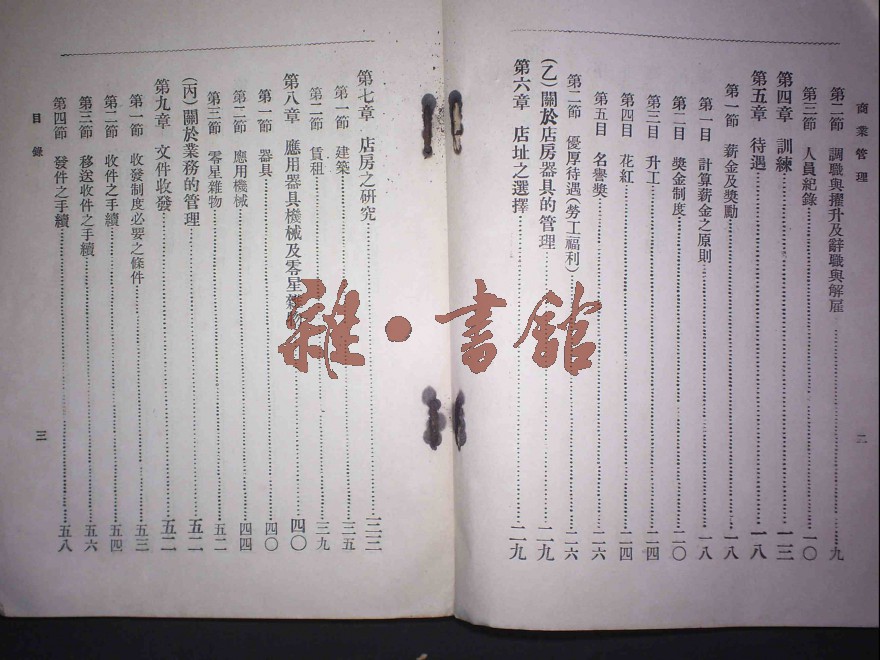 商業管理
第二節 調職與擢升及辭職與解雇……九
第三節 人員紀錄……一〇
第四章 訓練……一三
第五章 待遇……一八
第一節 薪金及獎勵……一八
第一目 計算薪金之原則……一八
第二目 獎金制度……二〇
第三目 升工……二四
第四目 花紅……二四
第五目 名譽獎……二六
第二節 優厚待遇(勞工福利)……二六
(乙)關於店房器具的管理……二九
第六章 店址之選擇……二九
二
第七章 店房之研究……三三
第一節 建築……三五
第二節 賃租……三九
第八章 應用器具機械及零星雜物……四〇
第一節 器具……四〇
第二節 應用機械……四四
第三節 零星雜物……五二
(丙)關於業務的管理……五二
第九章 文件收發……五二
第一節 收發制度必要之條件……五三
第二節 收件之手續……五四
第三節 移送收件之手續……五六
第四節 發件之手續……五八
目錄
三
雜·書館